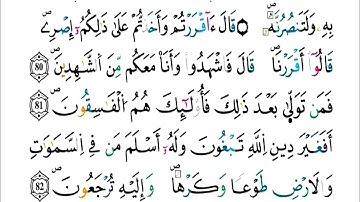 بِهِۦ وَلَتَنصُرُنَّهُۥ ۚ قَالَ ءَأَقْرَرْتُمْ وَأَخَذْتُمْ عَلَىٰ ذَٰلِكُمْ إِصْرِى
قَالُوٓا۟ أَقْرَرْنَا ۚ قَالَ فَٱشْهَدُوا۟ وَأَنَا۠ مَعَكُم مِّنَ ٱلشَّٰهِدِينَ 80
فَمَن تَوَلَّىٰ بَعْدَ ذَٰلِكَ فَأُو۟لَٰٓئِكَ هُمُ ٱلْفَٰسِقُونَ 81
أَفَغَيْرَ دِينِ ٱللَّهِ تَبْغُونَ وَلَهُۥٓ أَسْلَمَ مَن فِى ٱلسَّمَٰوَٰتِ
وَٱلْأَرْضِ طَوْعًا وَكَرْهًا وَإِلَيْهِ تُرْجَعُونَ 82